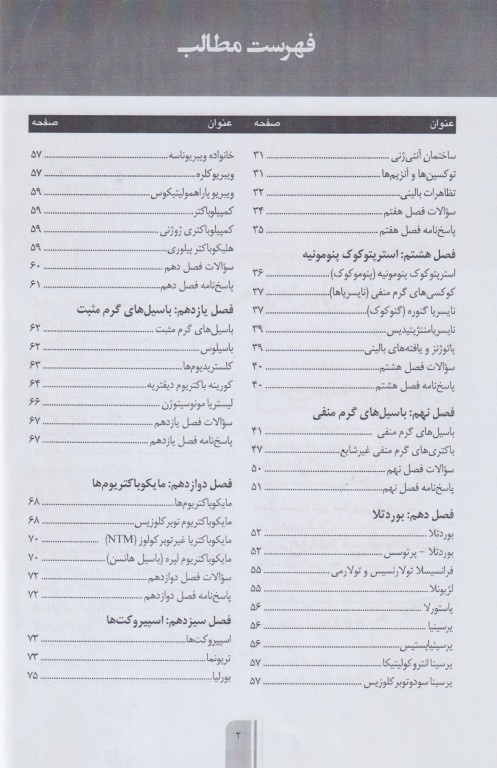 فهرست مطالب
عنوان صفحه
ساختمان آنتی‌ژنی ۳۱
توکسین‌ها و آنزیم‌ها ۳۱
تظاهرات بالینی ۳۲
سؤالات فصل هفتم ۳۴
پاسخ‌نامه فصل هفتم ۳۵
فصل هشتم: استرپتوکوک پنومونیه
استرپتوکوک پنومونیه (پنوموکوک) ۳۶
کوکسی‌های گرم منفی (نایسریاها) ۳۷
نایسریا گنوره (گنوکوک) ۳۷
نایسریامننژیتیدیس ۳۹
پاتوژنز و یافته‌های بالینی ۳۹
سؤالات فصل هشتم ۴۰
پاسخ‌نامه فصل هشتم ۴۰
فصل نهم: باسیل‌های گرم منفی
باسیل‌های گرم منفی ۴۱
باکتری‌های گرم منفی غیرشایع ۴۷
سؤالات فصل نهم ۵۰
پاسخ‌نامه فصل نهم ۵۱
فصل دهم: بوردتلا
بوردتلا ۵۲
بوردتلا - پرتوسس ۵۲
فرانسیسلا تولارنسیس و تولارمی ۵۵
لژیونلا ۵۵
پاستورلا ۵۶
یرسینیا ۵۶
یرسینیاپستیس ۵۶
یرسینا انتروکولیتیکا ۵۷
یرسینا سودوتوبرکلوزیس ۵۷
عنوان صفحه
خانواده ویبریوناسه ۵۷
ویبریوکلره ۵۷
ویبریو پاراهمولیتیکوس ۵۹
کمپیلوباکتر ۵۹
کمپیلوباکتری ژوژنی ۵۹
هلیکوباکتر پیلوری ۵۹
سؤالات فصل دهم ۶۰
پاسخ‌نامه فصل دهم ۶۱
فصل یازدهم: باسیل‌های گرم مثبت
باسیل‌های گرم مثبت ۶۲
باسیلوس ۶۲
کلستریدیوم‌ها ۶۳
کورینه باکتریوم دیفتریه ۶۴
لیستریا مونوسیتوژن ۶۶
سؤالات فصل یازدهم ۶۷
پاسخ‌نامه فصل یازدهم ۶۷
فصل دوازدهم: مایکوباکتریوم‌ها
مایکوباکتریوم‌ها ۶۸
مایکوباکتریوم توبرکلوزیس ۶۸
مایکوباکتریا غیرتوبرکولوز (NTM) ۷۰
مایکوباکتریوم لپره (باسیل هانسن) ۷۰
سؤالات فصل دوازدهم ۷۲
پاسخ‌نامه فصل دوازدهم ۷۲
فصل سیزدهم: اسپیروکت‌ها
اسپیروکت‌ها ۷۳
ترپونما ۷۳
بورلیا ۷۵
۲